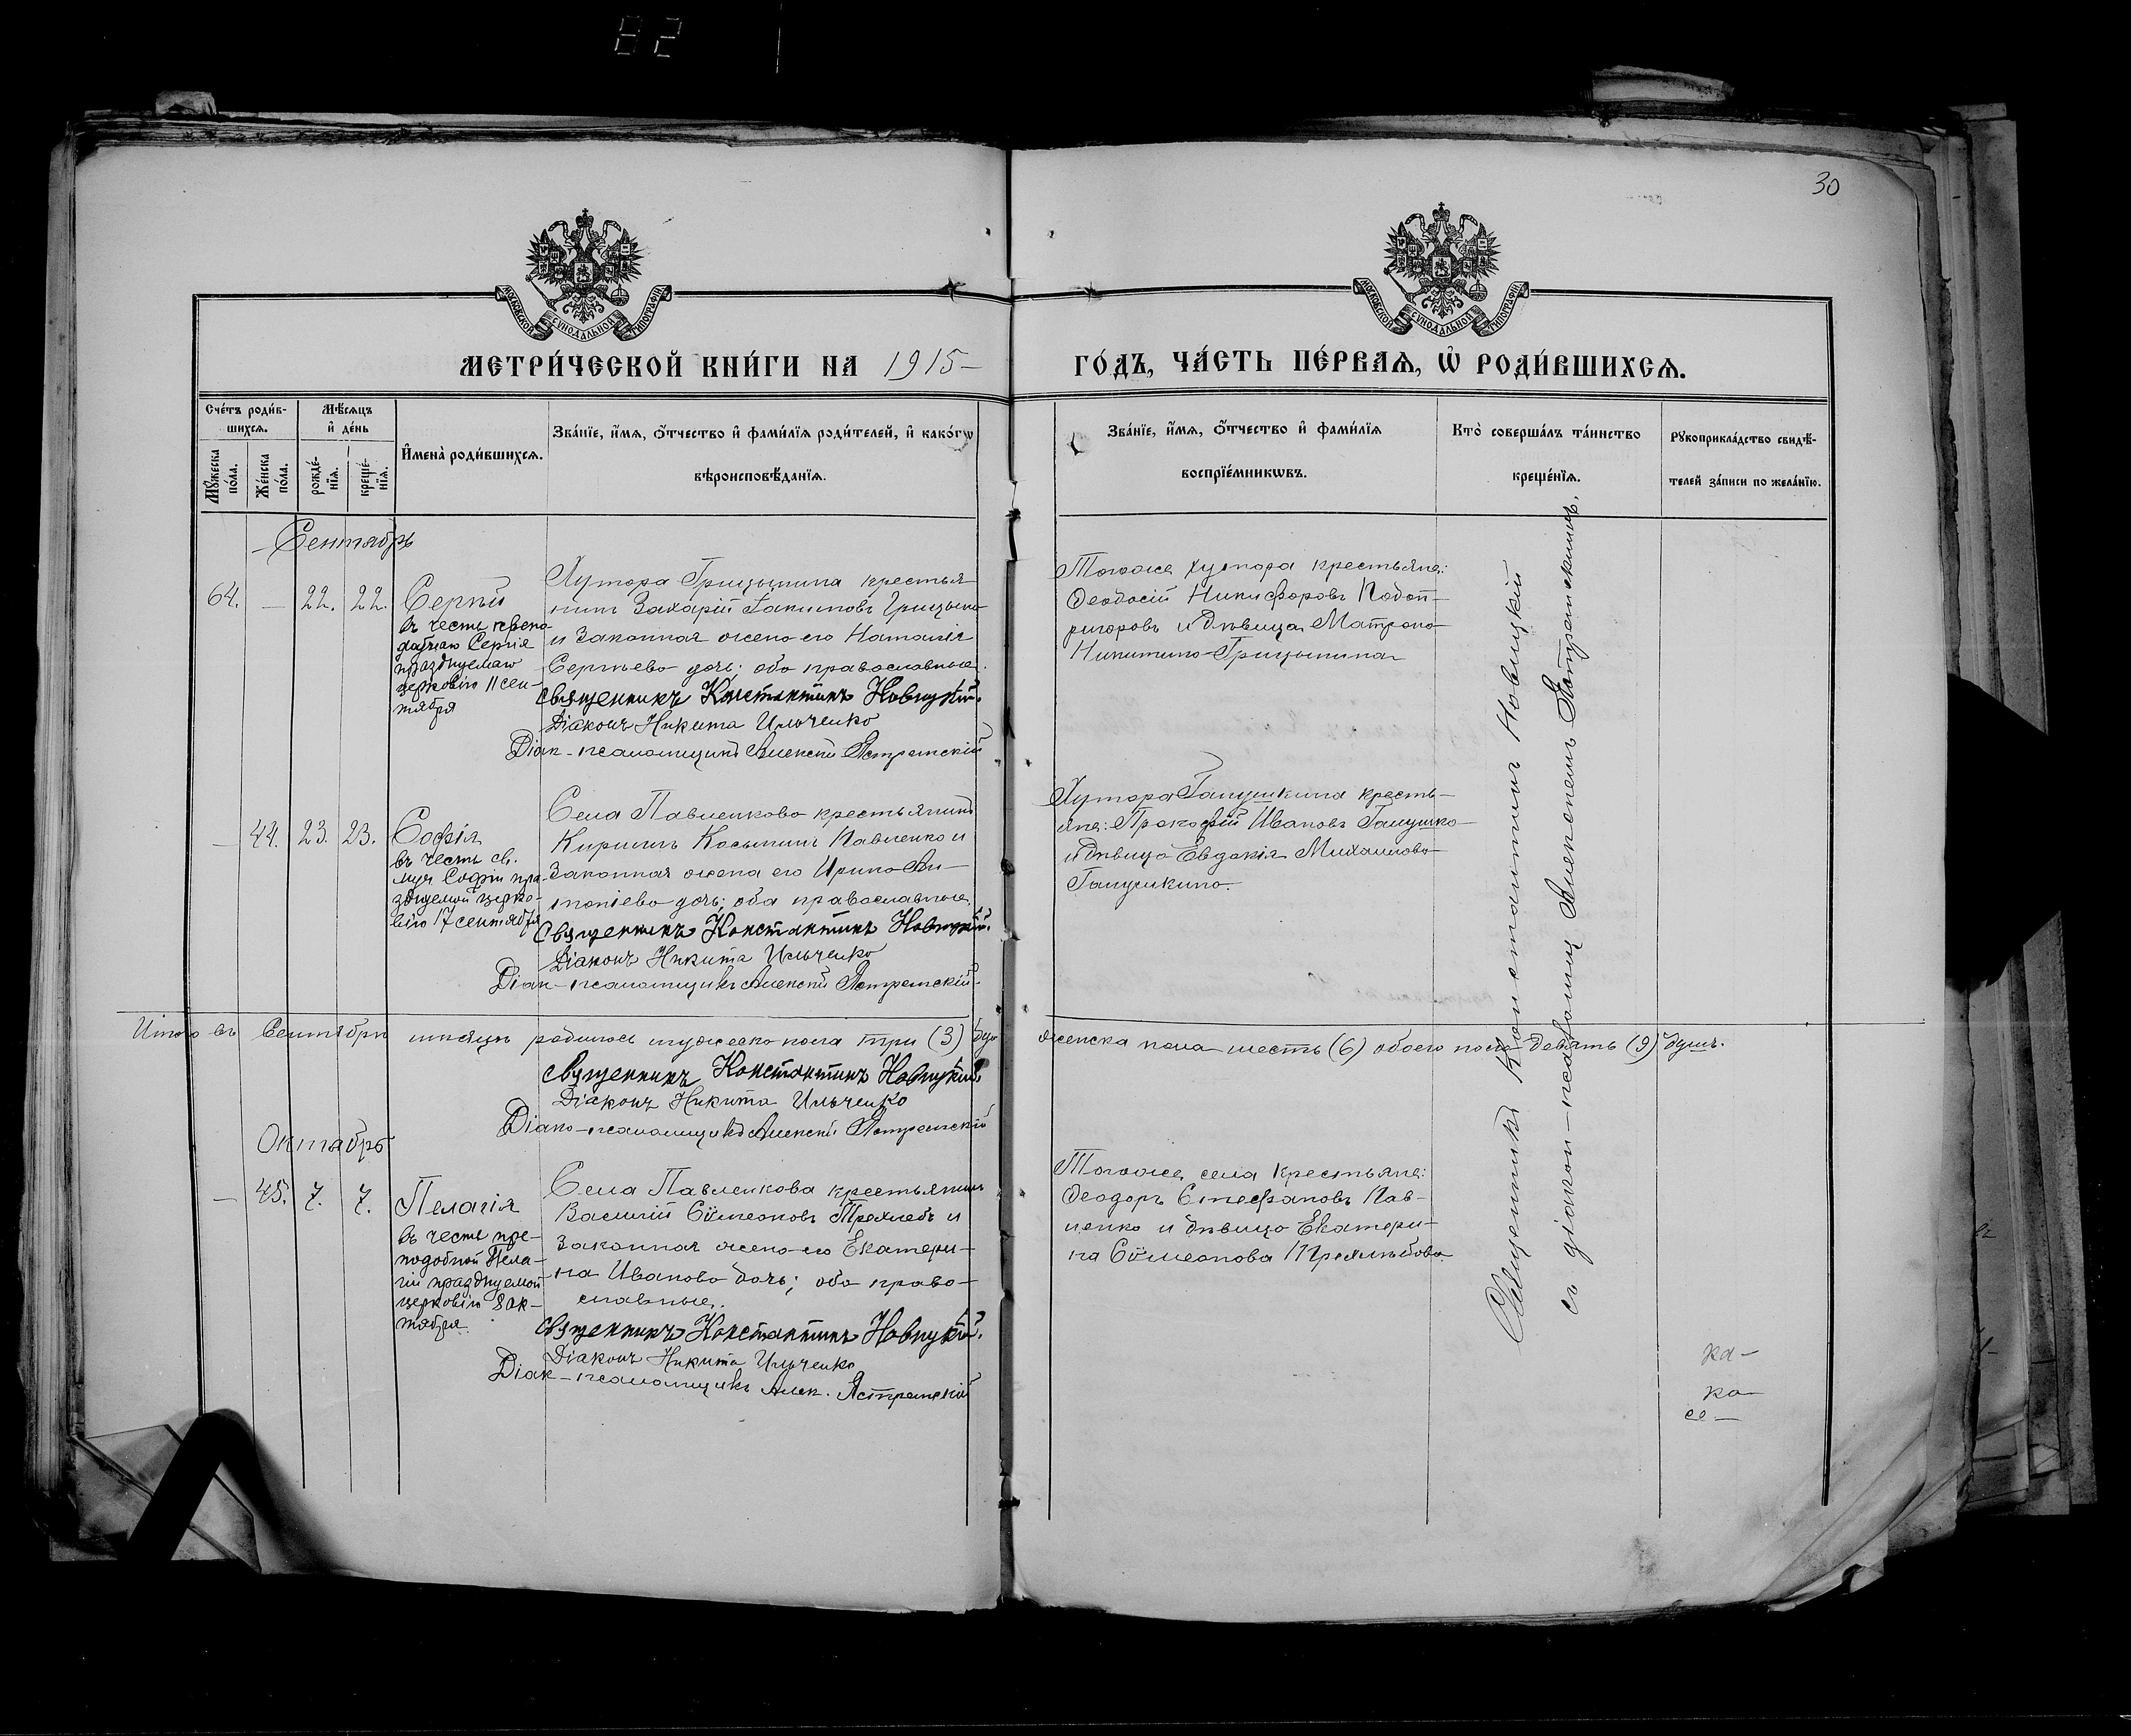 82
30
МОСКОВСКОЙ СУНОДАЛЬНОЙ ТИПОГРАФІИ
МОСКОВСКОЙ СУНОДАЛЬНОЙ ТИПОГРАФІИ
МЕТРИ́ЧЕСКОЙ КНИ́ГИ НА 1915 –
ГО́ДЪ, ЧА́СТЬ ПЕ́РВАѦ, Ѡ҆ РОДИ́ВШИХСѦ.
Сче́тъ роди́в-
шихсѧ.
Мѣ́сѧцъ
и҆ де́нь
Мꙋ́жеска
по́ла.
Же́нска
по́ла.
рожде́-
нїѧ.
креще́-
нїѧ.
И҆мена̀ роди́вшихсѧ.
Зва́нїе, и҆́мѧ, ѻ҆́тчество и҆ фами́лїѧ роди́телей, и҆ како́гѡ
вѣроисповѣ́данїѧ.
Зва́нїе, и҆́мѧ, ѻ҆́тчество и҆ фами́лїѧ
воспрїе́мникѡвъ.
Кто̀ соверша́лъ та́инство
креще́нїѧ.
Рꙋкоприкла́дство свидѣ́-
телей за́писи по жела́нїю.
Сентябрь
64. — 22. 22.
Сергій
въ честь препо-
добнаго Сергія
празднуемаго
церковію 11 сен-
тября
Хутора Грицынина крестья-
нинъ Захарій Іакимовъ Грицына
и законная жена его Наталія
Сергѣева дочь; оба православные.
Священникъ Константинъ Новицкій.
Діаконъ Никита Ильченко
Діак-псаломщикъ Алексій Ястремскій
Тогоже хутора крестьяне:
Феодосій Никифоровъ Подоп-
ригоровъ и дѣвица Матрона
Никитина Грицынина
— 44. 23. 23.
Софія
въ честь св.
муч Софіи пра-
зднуемой церко-
вію 17 сентября
Села Павленкова крестьянинъ
Кириллъ Косьминъ Павленко и
законная жена его Ирина Ан-
тоніева дочь; оба православные.
Священникъ Константинъ Новицкій.
Діаконъ Никита Ильченко
Діак-псаломщикъ Алексій Ястремскій.
Хутора Галушкина кресть-
яне: Прокофій Ивановъ Галушко
и дѣвица Евдокія Михаилова
Галушкина.
Итого въ Сентябрѣ мѣсяцѣ родилось мужеска пола три (3) женска пола шесть (6) обоего пола девять (9) душъ.
Священникъ Константинъ Новицкій.
Діаконъ Никита Ильченко
Діако-псаломщикъ Алексій Ястремскій
Октябрь
— 45. 7. 7.
Пелагія
въ честь пре-
подобной Пела-
гіи празднуемой
церковію 8 ок-
тября.
Села Павленкова крестьянинъ
Василій Сѵмеоновъ Трехлебъ и
законная жена его Екатери-
на Иванова дочь; оба право-
славные.
Священникъ Константинъ Новицкій.
Діаконъ Никита Ильченко
Діак-псаломщикъ Алек. Ястремскій
Тогоже села крестьяне:
Феодоръ Стефановъ Пав-
ленко и дѣвица Екатери-
на Сѵмеонова Трехлѣбова.
Священникъ Константинъ Новицкій
съ діакон-псаломщ Алексіемъ Ястремскимъ.
ка-
ка
се-